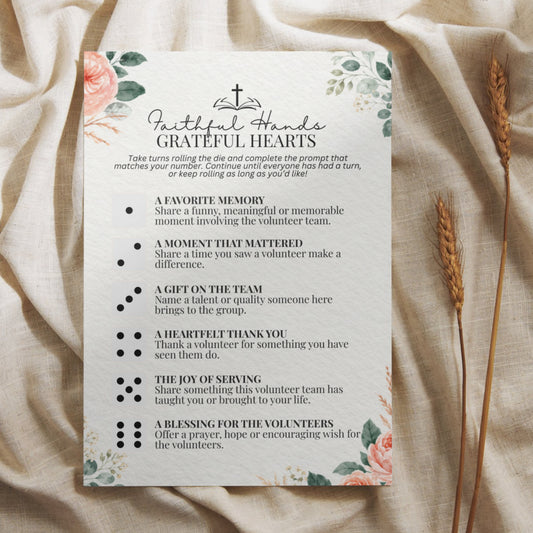 Faithful Hands
GRATEFUL HEARTS
Take turns rolling the die and complete the prompt that
matches your number. Continue until everyone has had a turn,
or keep rolling as long as you'd like!
A FAVORITE MEMORY
Share a funny, meaningful or memorable
moment involving the volunteer team.
A MOMENT THAT MATTERED
Share a time you saw a volunteer make a
difference.
A GIFT ON THE TEAM
Name a talent or quality someone here
brings to the group.
A HEARTFELT THANK YOU
Thank a volunteer for something you have
seen them do.
THE JOY OF SERVING
Share something this volunteer team has
taught you or brought to your life.
A BLESSING FOR THE VOLUNTEERS
Offer a prayer, hope or encouraging wish for
the volunteers.